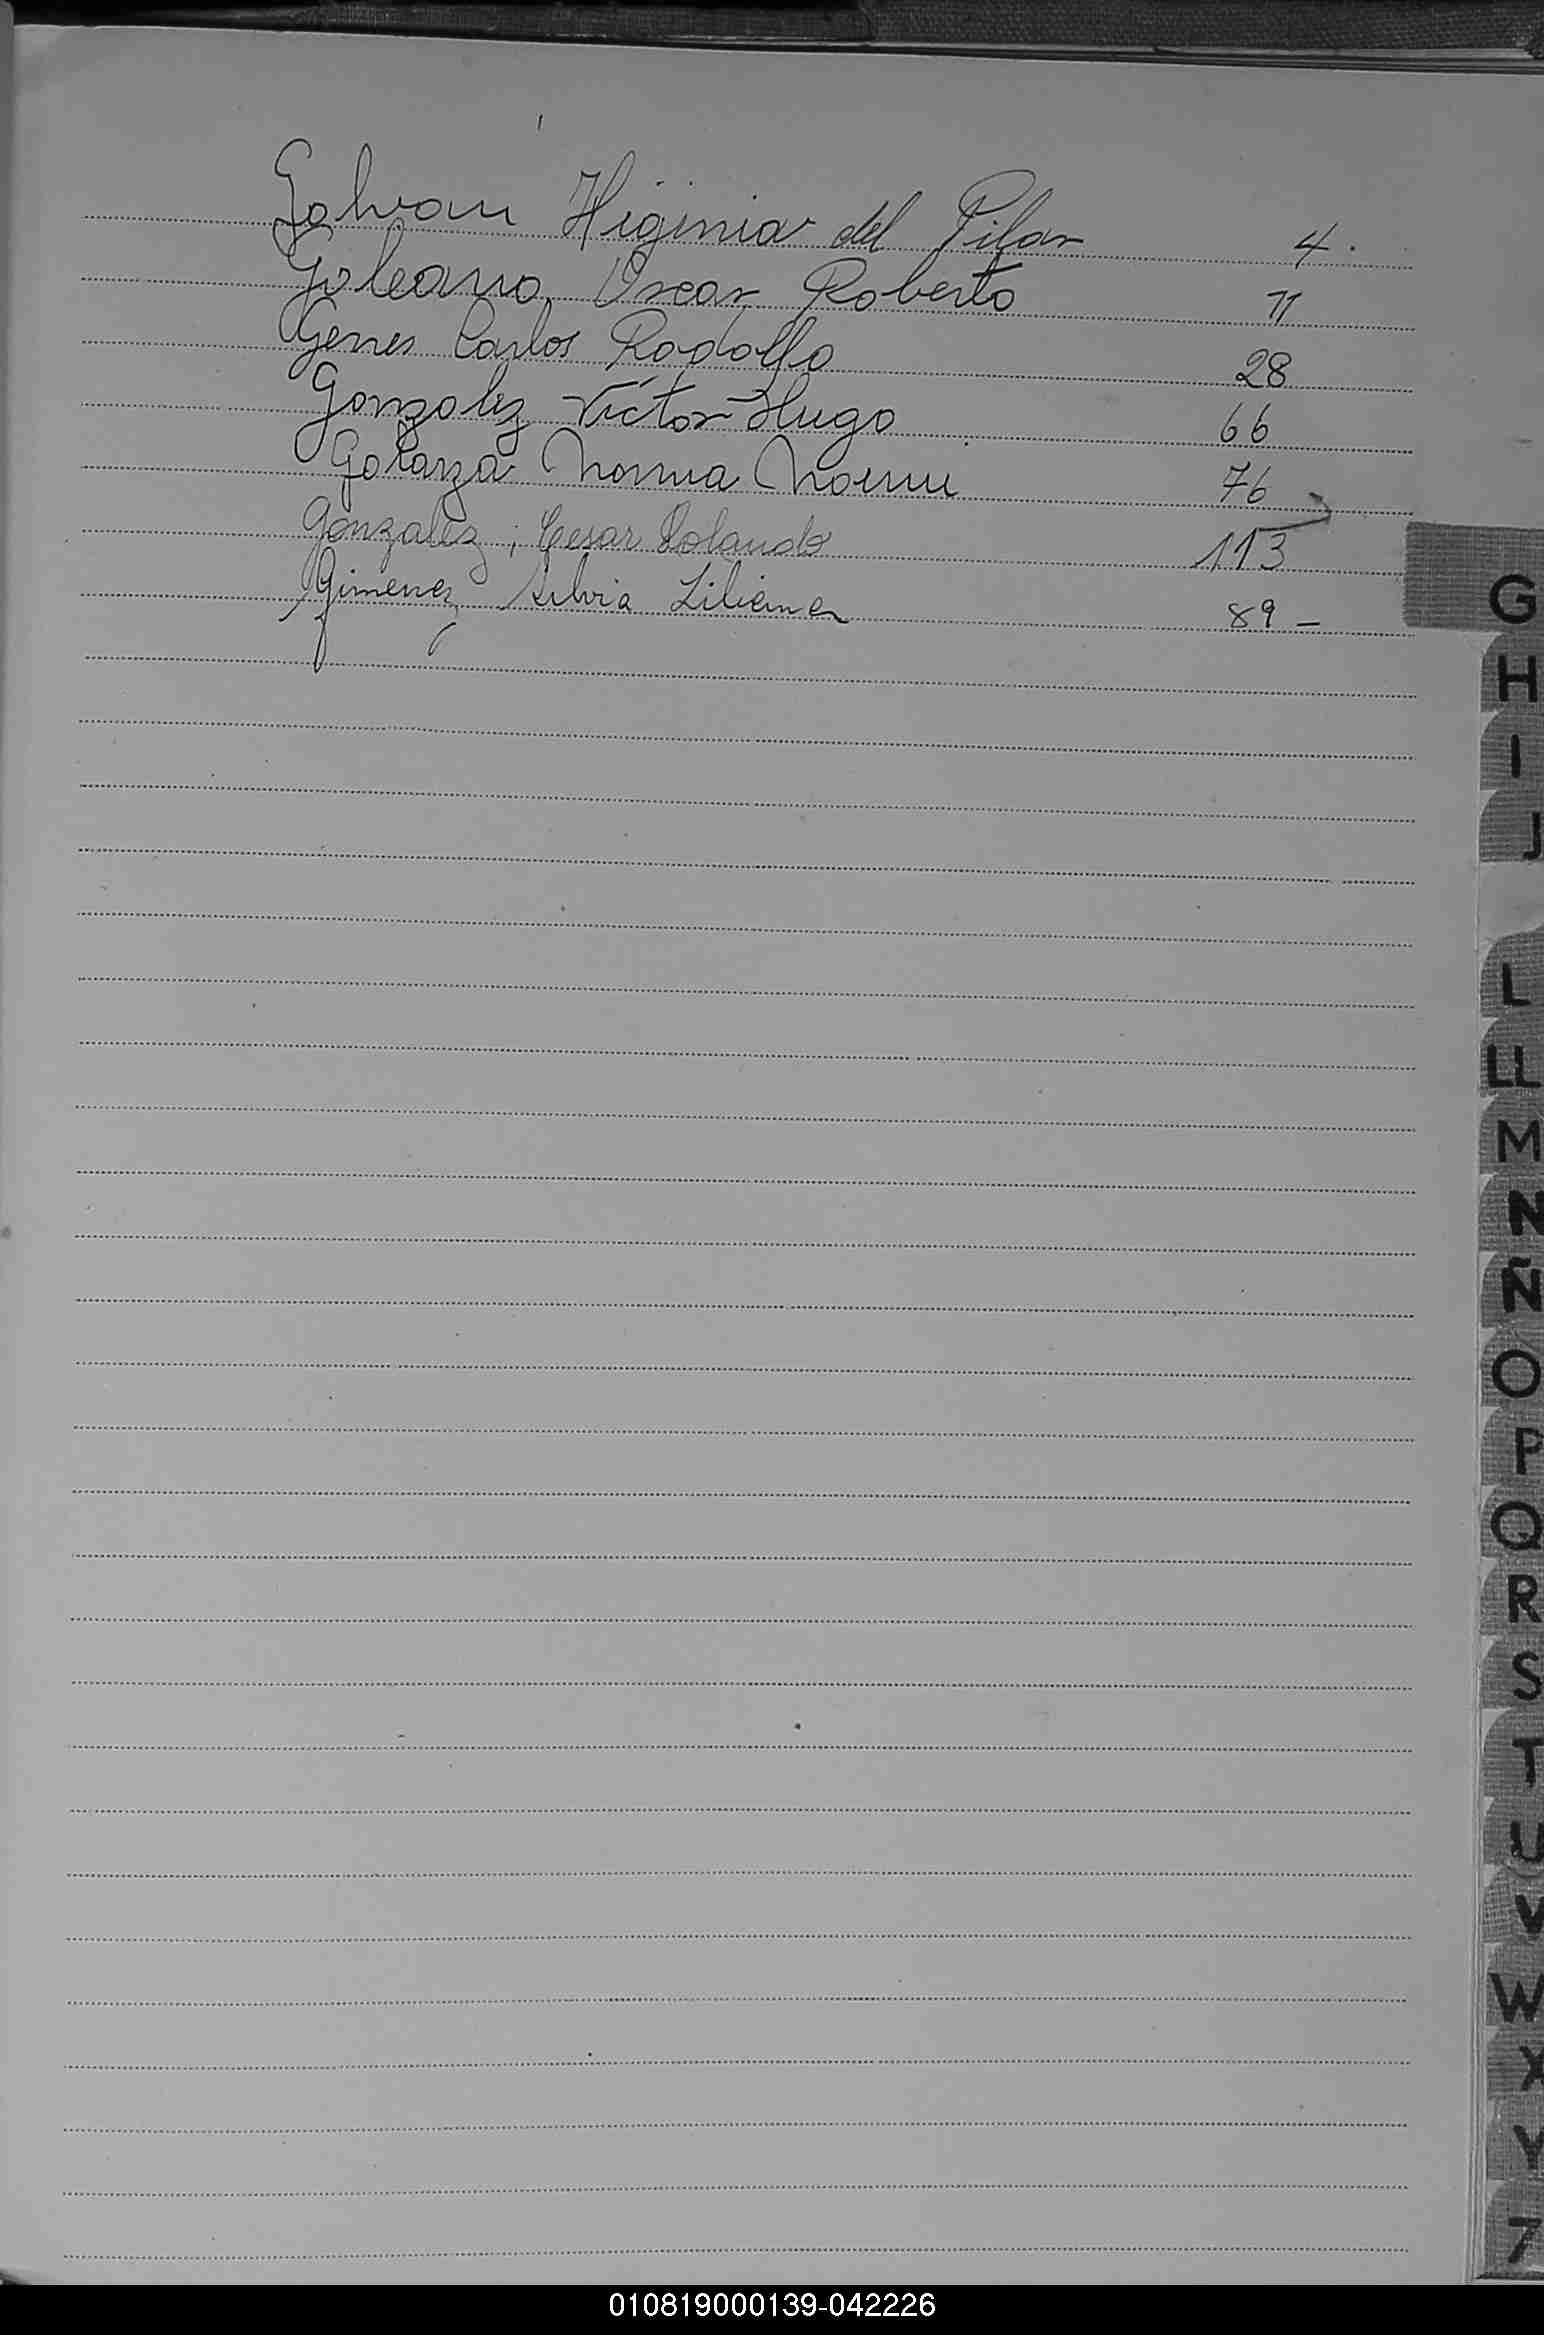 Galvan Higinia del Pilar 4.
Galeano, Oscar Roberto 11
Genes Carlos Rodolfo 28
Gonzalez Víctor Hugo 66
Galarza Norma Noemi 76
Gonzalez, Cesar Rolando 113
Gimenez, Silvia Liliana 89 -
G
H
I
J
L
LL
M
N
Ñ
O
P
Q
R
S
T
U
V
W
X
Y
Z
010819000139-042226